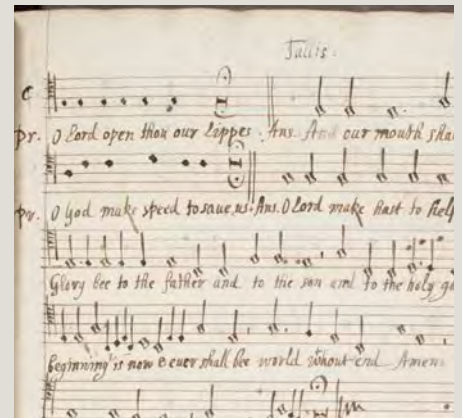 Tallis.
C
pr. O Lord open thou our Lippes. Ans. And our mouth sha
pr. O God make speed to save us. Ans. O Lord make hast to help
Glory bee to the father and to the son and to the holy g
beginning is now & ever shall bee world wthout end Amen